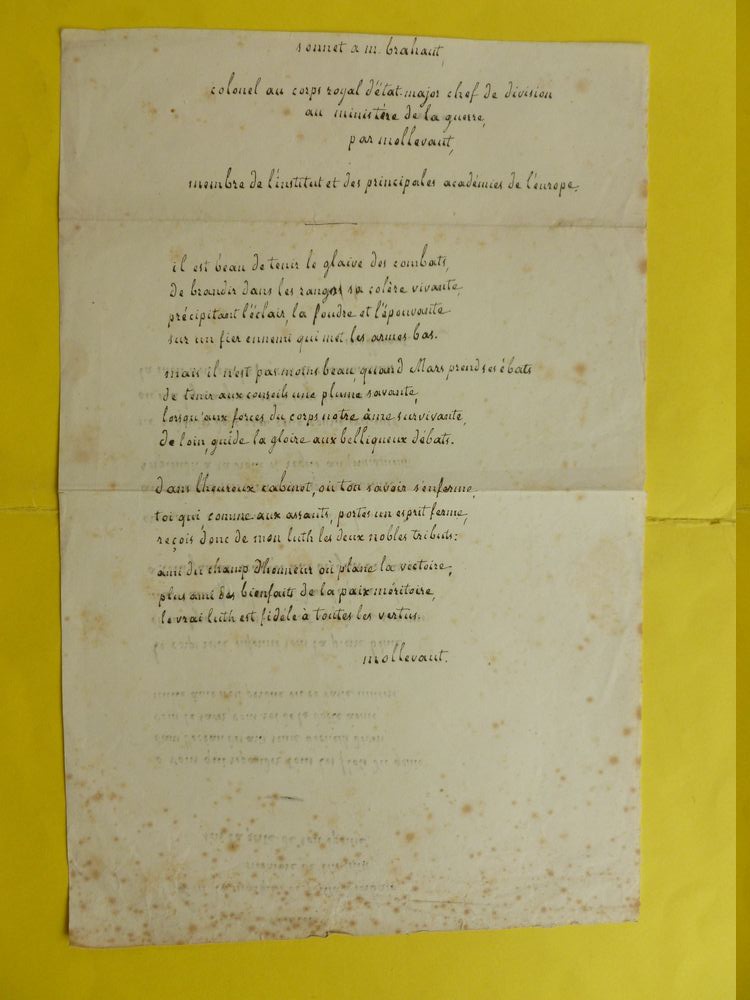 sonnet a m. brahaut,
colonel au corps royal d'état-major chef de division
au ministère de la guerre,
par mollevaut,
membre de l'institut et des principales académies de l'europe.
il est beau de tenir le glaive des combats,
de brandir dans les rangs sa colère vivante,
précipitant l'éclair, la foudre et l'épouvante
sur un fier ennemi qui met les armes bas.
mais il n'est pas moins beau, quand Mars prend ses ébats
de tenir aux conseils une plume savante,
lorsqu'aux forces du corps notre âme survivante,
de loin, guide la gloire aux belliqueux débats.
dans l'heureux cabinet, où ton savoir s'enferme,
toi qui comme aux assauts, portes un esprit ferme,
reçois donc de mon luth les deux nobles tributs:
ami du champ d'honneur où plane la victoire,
plus ami des bienfaits de la paix méritoire,
le vrai luth est fidèle à toutes les vertus.
mollevaut.